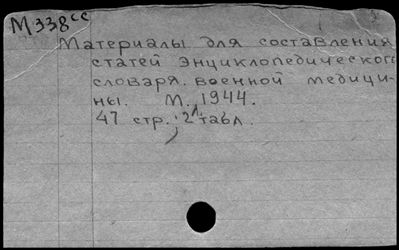 М338сс
Материалы для составления
статей Энциклопедического
словаря военной медици-
ны. М., 1944.
47 стр.; 2 л. табл.